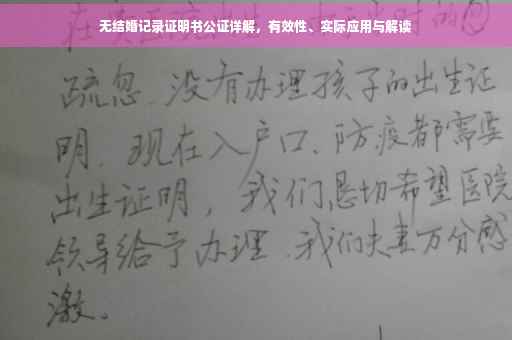 无结婚记录证明书公证详解，有效性、实际应用与解读
疏忽、没有办理孩子的出生证
明、现在入户口、防疫都需要
出生证明，我们恳切希望医院
领导给予办理、我们夫妻万分感
激。